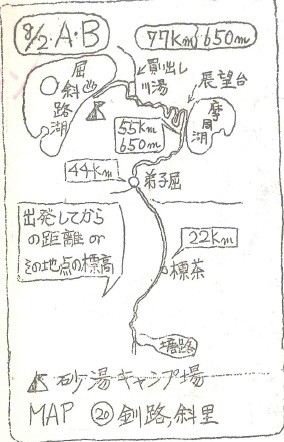 8/2・A・B
77km・650m
屈斜路湖
買出し
川湯
展望台
摩周湖
55km
650m
44km
弟子屈
出発してから
の距離 or
その地点の標高
22km
標茶
塘路
砂湯キャンプ場
MAP ⑳ 釧路斜里